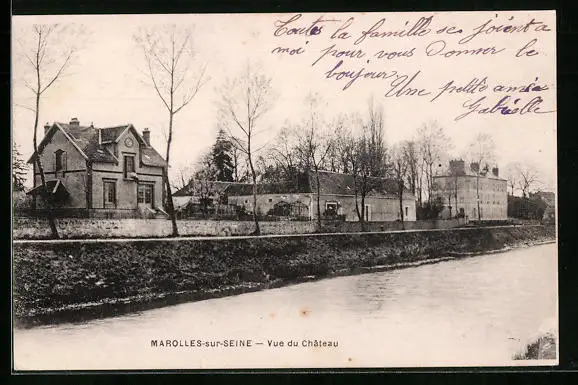 Toute la famille se joient a
moi pour vous donner le
boujour
Une petite amie
Gabrielle
MAROLLES-sur-SEINE — Vue du Château